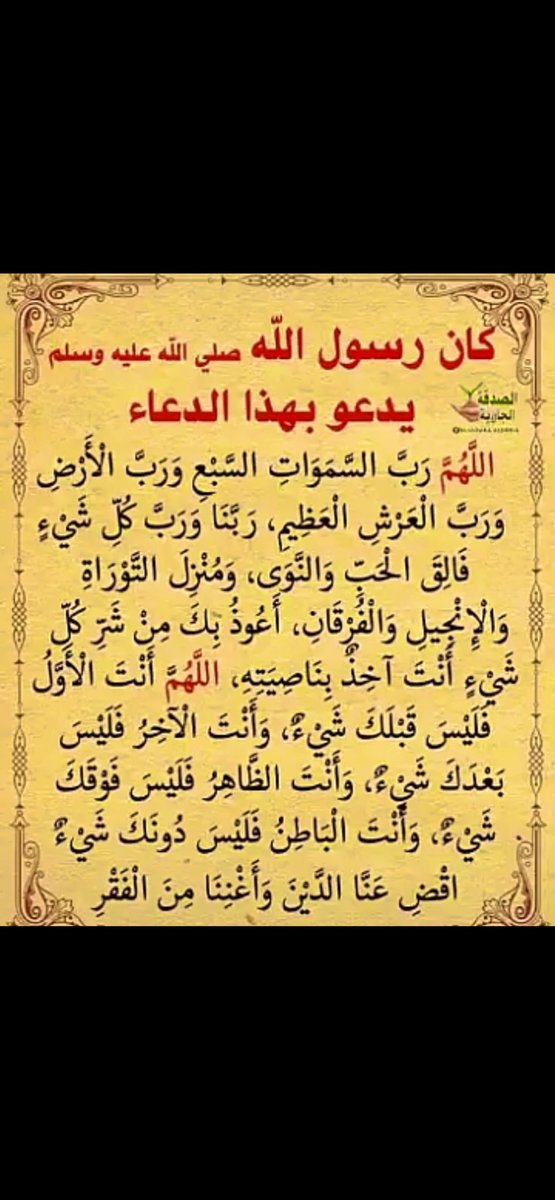 كان رسول الله صلي الله عليه وسلم
يدعو بهذا الدعاء
الصدقة
الجارية
اللَّهُمَّ رَبَّ السَّمَوَاتِ السَّبْعِ وَرَبَّ الْأَرْضِ
وَرَبَّ الْعَرْشِ الْعَظِيمِ، رَبَّنَا وَرَبَّ كُلِّ شَيْءٍ
فَالِقَ الْحَبِّ وَالنَّوَى، وَمُنْزِلَ التَّوْرَاةِ
وَالْإِنْجِيلِ وَالْفُرْقَانِ، أَعُوذُ بِكَ مِنْ شَرِّ كُلِّ
شَيْءٍ أَنْتَ آخِذٌ بِنَاصِيَتِهِ، اللَّهُمَّ أَنْتَ الْأَوَّلُ
فَلَيْسَ قَبْلَكَ شَيْءٌ، وَأَنْتَ الْآخِرُ فَلَيْسَ
بَعْدَكَ شَيْءٌ، وَأَنْتَ الظَّاهِرُ فَلَيْسَ فَوْقَكَ
شَيْءٌ، وَأَنْتَ الْبَاطِنُ فَلَيْسَ دُونَكَ شَيْءٌ
اقْضِ عَنَّا الدَّيْنَ وَأَغْنِنَا مِنَ الْفَقْرِ